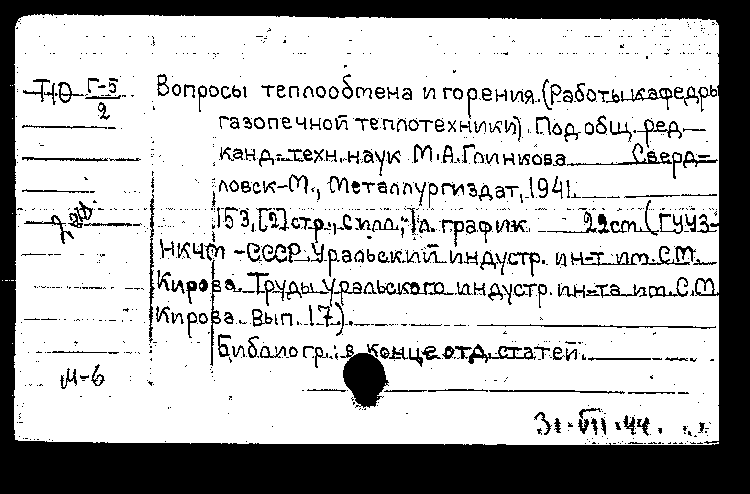 Т10 Г-5/2
Вопросы теплообмена и горения. (Работы кафедры
газопечной теплотехники). Под общ. ред.
канд. техн. наук М.А. Глинкова. Сверд-
ловск-М., Металлургиздат, 1941.
153, [2] стр., с илл.; 1 л. график 22см. (ГУУЗ-
НКЧМ-СССР. Уральский индустр. ин-т им. С.М.
Кирова. Труды Уральского индустр. ин-та им. С.М.
Кирова. Вып. 17).
Библиогр.: в конце отд. статей.
М-6
31-VII-44.